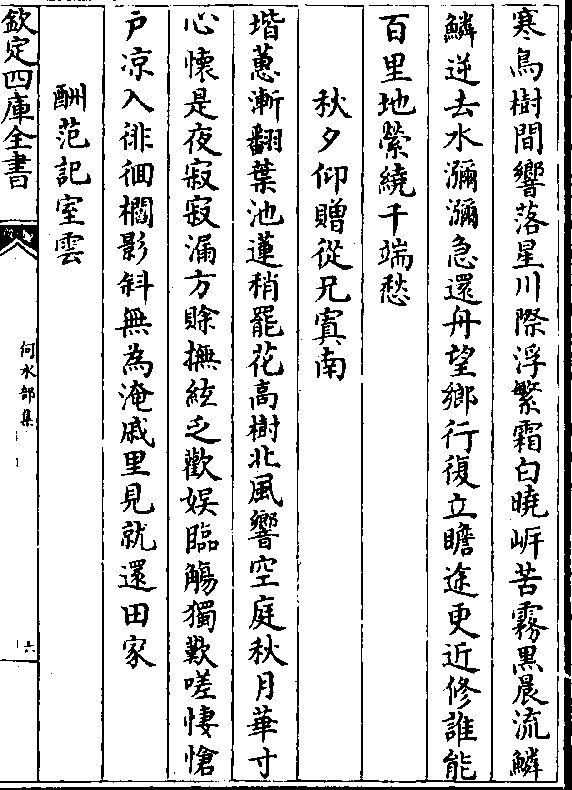 寒鳥樹間響落星川際浮繁霜白曉岸苦霧黒晨流鱗
鱗逆去水瀰瀰急還舟望鄉行復立瞻途更近修誰能
百里地縈繞千端愁
秋夕仰贈從兄寘南
堦蕙漸翻葉池蓮稍罷花高樹北風響空庭秋月華寸
心懷是夜寂寂漏方賖撫絃乏歡娛臨觴獨歎嗟悽愴
户凉入徘徊櫩影斜無為淹戚里見就還田家
酬范記室雲
欽定四庫全書
何水部集
六